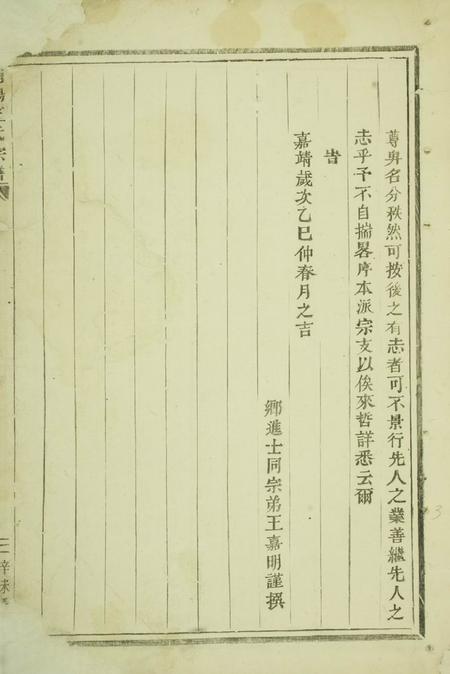 尊卑名分秩然可按後之有志者可不景行先人之業善繼先人之
志乎予不自揣畧序本派宗支以俟來哲詳悉云爾
旹
嘉靖歲次乙巳仲春月之吉
鄉進士同宗弟王嘉明謹撰
宗譜
三
辛未
3